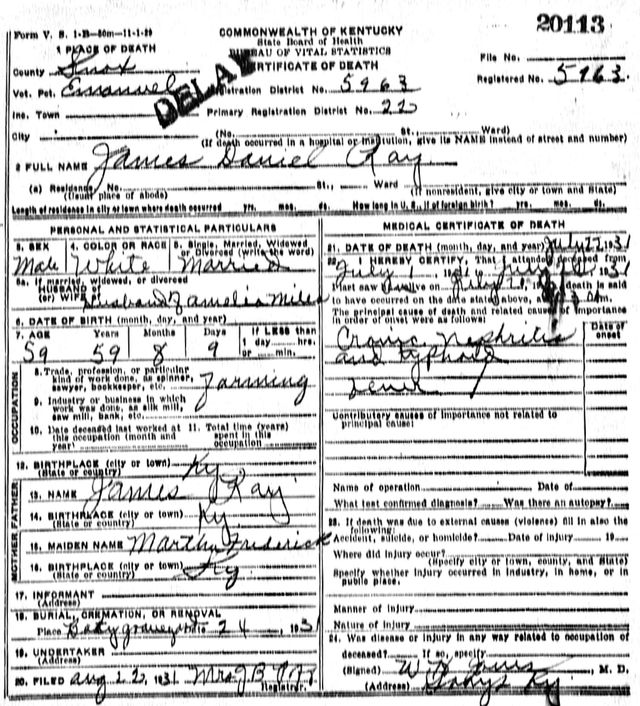 20113
Form V. S. 1-B-50m-11-1-29
COMMONWEALTH OF KENTUCKY
State Board of Health
BUREAU OF VITAL STATISTICS
CERTIFICATE OF DEATH
DELAY
1 PLACE OF DEATH
County Knox
Vot. Pct. Emanuel
Registration District No. 5963
File No.
Registered No. 5963
Inc. Town
Primary Registration District No. 22
City (No. St., Ward)
(If death occurred in a hospital or institution, give its NAME instead of street and number)
2 FULL NAME James Daniel Ray
(a) Residence, No. St., Ward
(Usual place of abode) (If nonresident, give city or town and State)
Length of residence in city or town where death occurred yrs. mos. ds. How long in U. S., if of foreign birth? yrs. mos. ds.
PERSONAL AND STATISTICAL PARTICULARS
3. SEX 4. COLOR OR RACE 5. Single, Married, Widowed
or Divorced (write the word)
Male White Married
5a. If married, widowed, or divorced
HUSBAND of
(or) WIFE of Husband
6. DATE OF BIRTH (month, day, and year)
7. AGE Years Months Days If LESS than
1 day hrs.
or min.
59 59 8 9
OCCUPATION
8. Trade, profession, or particular
kind of work done, as spinner,
sawyer, bookkeeper, etc. Farming
9. Industry or business in which
work was done, as silk mill,
saw mill, bank, etc.
10. Date deceased last worked at 11. Total time (years)
this occupation (month and spent in this
year) occupation
12. BIRTHPLACE (city or town) Ky.
(State or country)
MOTHER FATHER
13. NAME James Ray
14. BIRTHPLACE (city or town) Ky.
(State or country)
15. MAIDEN NAME Martha Frederick
16. BIRTHPLACE (city or town) Ky
(State or country)
17. INFORMANT
(Address)
18. BURIAL, CREMATION, OR REMOVAL
Place graveyard 24, 1931
19. UNDERTAKER
(Address)
20. FILED Aug 22, 1931 Mrs J B
Registrar.
MEDICAL CERTIFICATE OF DEATH
21. DATE OF DEATH (month, day, and year) July 22 1931
22. I HEREBY CERTIFY, That I attended deceased from
July 1 July 1931
I last saw alive on July death is said
to have occurred on the date stated above, m.
The principal cause of death and related causes of importance
in order of onset were as follows:
Date of
onset
Cronic Nephritis
and typhoid
Contributory causes of importance not related to
principal cause:
Name of operation Date of
What test confirmed diagnosis? Was there an autopsy?
23. If death was due to external causes (violence) fill in also the
following:
Accident, suicide, or homicide? Date of injury 19
Where did injury occur?
(Specify city or town, county, and State)
Specify whether injury occurred in industry, in home, or in
public place.
Manner of injury
Nature of injury
24. Was disease or injury in any way related to occupation of
deceased? If so, specify
(Signed) W B Jones, M. D.
(Address) Ky.